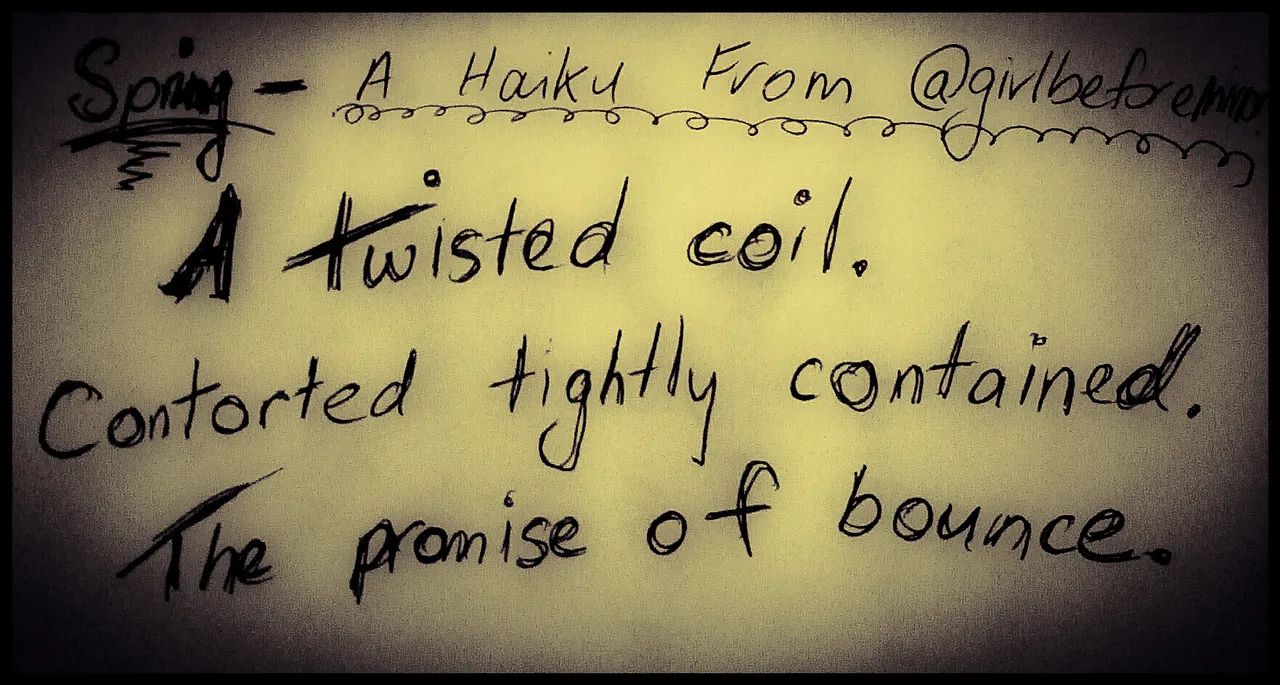 Spring - A Haiku From @girlbeforemirror
A twisted coil.
Contorted tightly contained.
The promise of bounce.